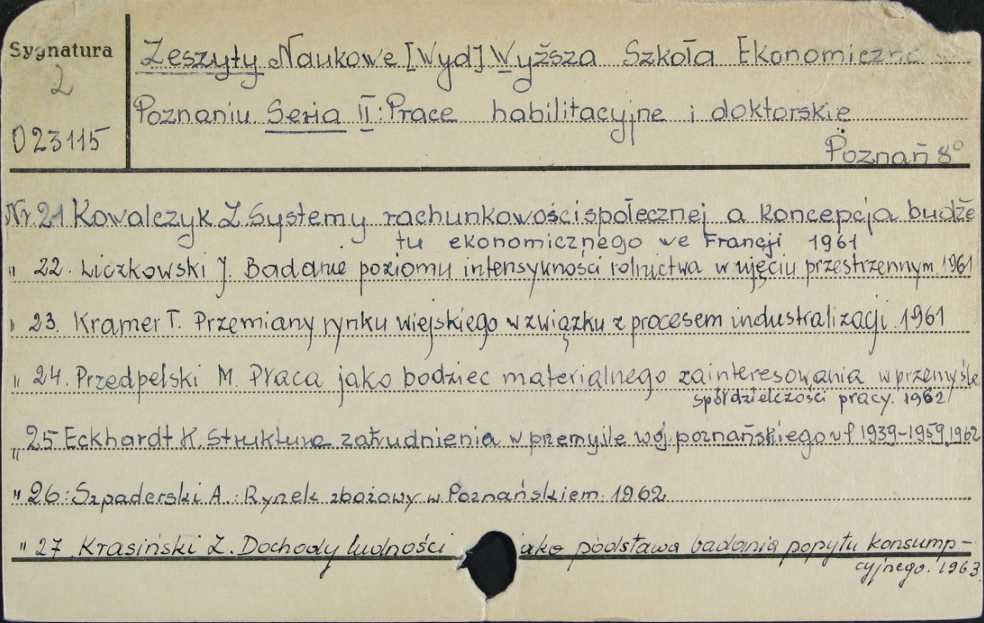 Sygnatura
2
023115
Zeszyty Naukowe [Wyd] Wyższa Szkoła Ekonomiczna
Poznaniu Seria II: Prace habilitacyjne i doktorskie
Poznań 8°
Nr. 21 Kowalczyk Z Systemy rachunkowości społecznej a koncepcja budże
tu ekonomicznego we Francji 1961
" 22. Liczkowski J. Badanie poziomu intensywności rolnictwa w ujęciu przestrzennym 1961
" 23. Kramer T. Przemiany rynku wiejskiego w związku z procesem industralizacji 1961
" 24. Przedpełski M. Płaca jako bodziec materialnego zainteresowania w przemyśle
spółdzielczości pracy. 1962
" 25 Eckhardt K. Struktura zatrudnienia w przemyśle woj. poznańskiego 1939-1959 1962
" 26: Szpaderski A.: Rynek zbożowy w Poznańskiem. 1962
" 27 Krasiński Z. Dochody ludności jako podstawa badania popytu konsump-
cyjnego. 1963.